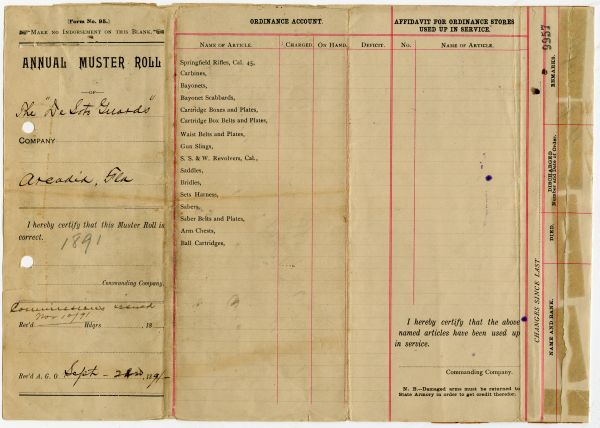 (Form No. 95.)
MAKE NO INDORSEMENT ON THIS BLANK.
ANNUAL MUSTER ROLL
—OF—
The "De Soto Guards"
COMPANY
Arcadia, Fla
I hereby certify that this Muster Roll is
correct.
1891
Commanding Company.
Commissions issued
Nov 10/91
Rec'd Hdqrs. , 18
Rec'd A. G. O. Sept - 22nd, 1891-
ORDINANCE ACCOUNT.
NAME OF ARTICLE. CHARGED. ON HAND. DEFICIT.
Springfield Rifles, Cal. 45,
Carbines,
Bayonets,
Bayonet Scabbards,
Cartridge Boxes and Plates,
Cartridge Box Belts and Plates,
Waist Belts and Plates,
Gun Slings,
S. S. & W. Revolvers, Cal.,
Saddles,
Bridles,
Sets Harness,
Sabers,
Saber Belts and Plates,
Arm Chests,
Ball Cartridges,
AFFIDAVIT FOR ORDNANCE STORES
USED UP IN SERVICE.
NO. NAME OF ARTICLE.
I hereby certify that the above
named articles have been used up
in service.
Commanding Company.
N. B.—Damaged arms must be returned to
State Armory in order to get credit therefor.
CHANGES SINCE LAST
9957
NAME AND RANK.
DIED.
DISCHARGED.
Number and Date of Order.
REMARKS.